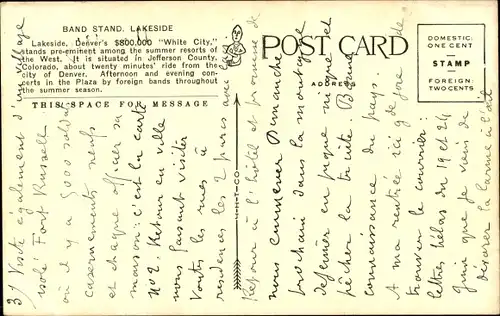 BAND STAND, LAKESIDE
Lakeside, Denver's $800,000 "White City,"
stands pre-eminent among the summer resorts of
the West. It is situated in Jefferson County,
Colorado, about twenty minutes' ride from the
city of Denver. Afternoon and evening con-
certs in the Plaza by foreign bands throughout
the summer season.
THIS SPACE FOR MESSAGE
POST CARD
ADDRESS
DOMESTIC:
ONE CENT
STAMP
FOREIGN:
TWO CENTS
H-H-T-CO
3) Visité également d'un village
isolé Fort Russell
où il y a 5000 soldats
casernements neufs
et chaque officier sa
maison: c'est la carte
No 2. Retour en ville
nous faisant visiter
toutes les rues à
résidences les 2 parcs
Retour à l'hôtel et promène de
nous commencer Dimanche
prochain dans la montagne
déjeuner en pique nique et
pêcher la truite. Bonne
connaissance du pays
A ma rentrée ici gde joie de
trouver le courrier:
lettres hélas du 19 et 24
juin que je viens de
dévorer la larme à l'œil